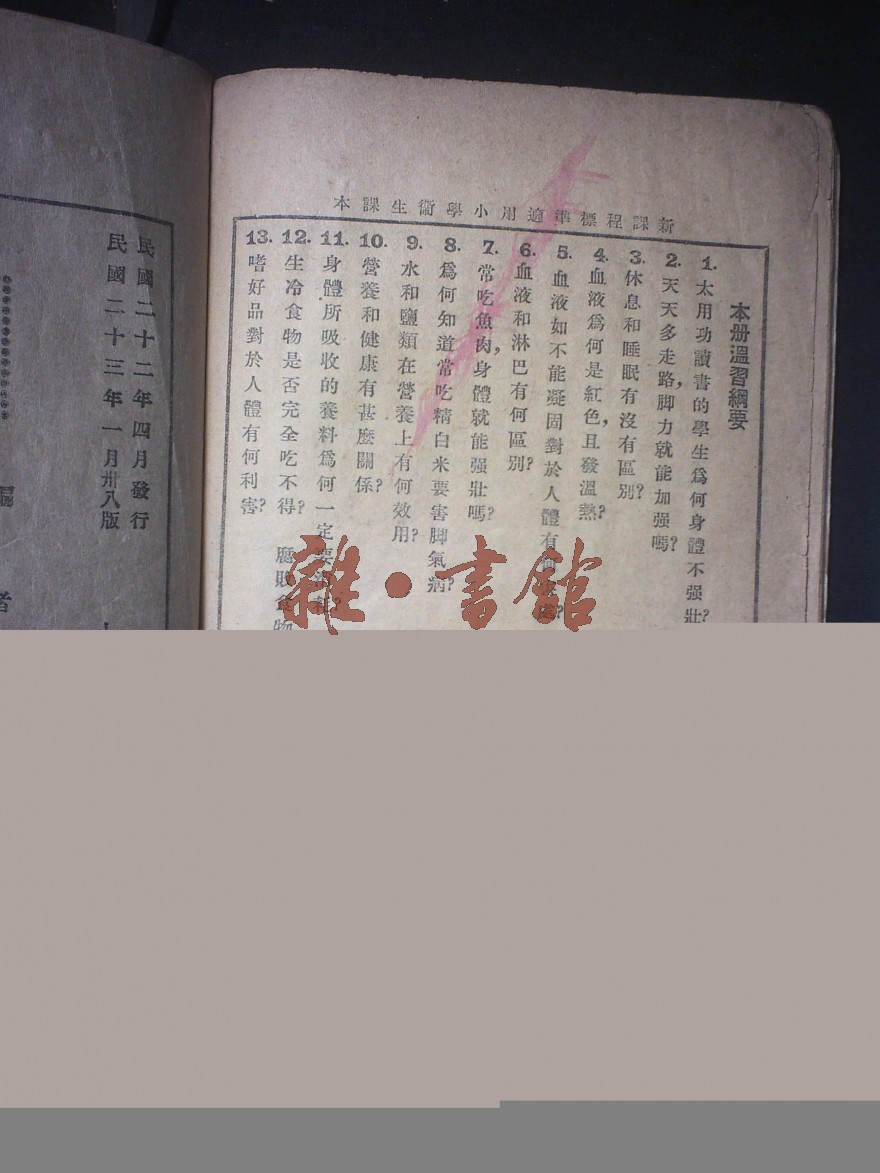 新課程標準適用小學衞生課本
本册溫習綱要
1. 太用功讀書的學生爲何身體不强壯?
2. 天天多走路,脚力就能加强嗎?
3. 休息和睡眠有沒有區別?
4. 血液爲何是紅色,且發溫熱?
5. 血液如不能凝固對於人體有何
6. 血液和淋巴有何區別?
7. 常吃魚肉,身體就能强壯嗎?
8. 爲何知道常吃精白米要害脚氣病?
9. 水和鹽類在營養上有何效用?
10. 營養和健康有甚麼關係?
11. 身體所吸收的養料爲何一定要
12. 生冷食物是否完全吃不得? 腐敗食物
13. 嗜好品對於人體有何利害?
雜·書館
民國二十二年四月發行
民國二十三年一月卅八版
者